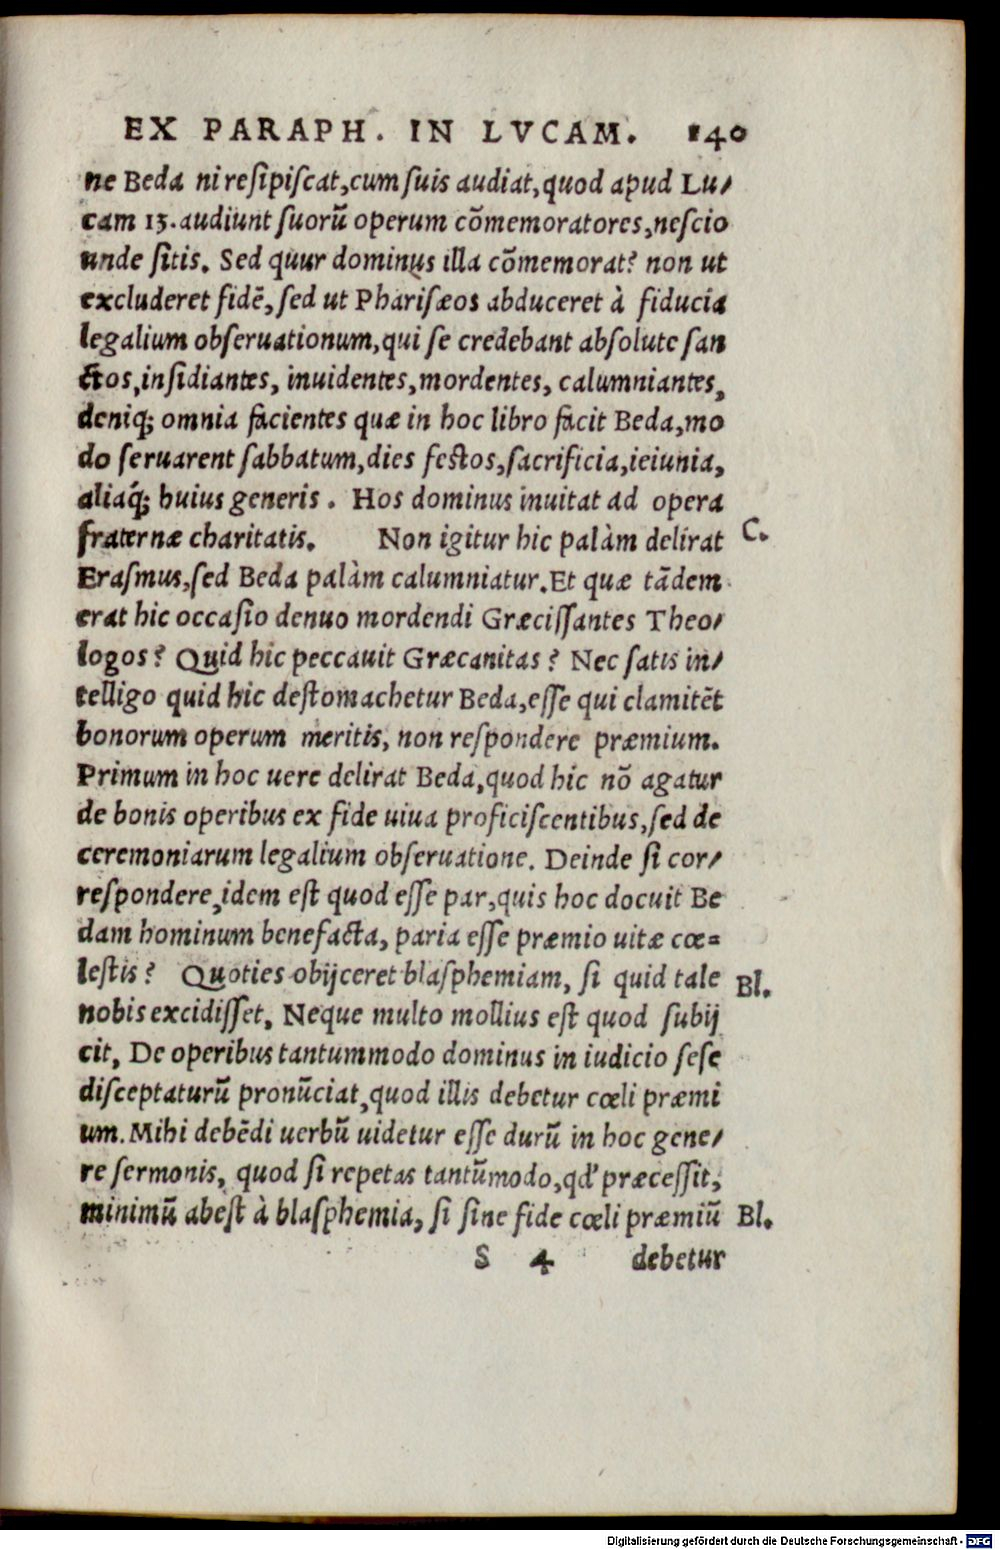 EX PARAPH. IN LVCAM. 140
ne Beda ni resipiscat,cum suis audiat,quod apud Lu/
cam 13.audiunt suorũ operum cõmemoratores,nescio
unde sitis. Sed quur dominus illa cõmemorat? non ut
excluderet fidẽ,sed ut Pharisæos abduceret à fiducia
legalium obseruationum,qui se credebant absolute san
ctos,insidiantes, inuidentes,mordentes, calumniantes,
deniq; omnia facientes quæ in hoc libro facit Beda,mo
do seruarent sabbatum,dies festos,sacrificia,ieiunia,
aliaq́; huius generis. Hos dominus inuitat ad opera
fraternæ charitatis. Non igitur hic palàm delirat C.
Erasmus,sed Beda palàm calumniatur.Et quæ tãdem
erat hic occasio denuo mordendi Græcissantes Theo/
logos? Quid hic peccauit Græcanitas? Nec satis in/
telligo quid hic destomachetur Beda,esse qui clamitẽt
bonorum operum meritis, non respondere præmium.
Primum in hoc uere delirat Beda,quod hic nõ agatur
de bonis operibus ex fide uiua proficiscentibus,sed de
ceremoniarum legalium obseruatione. Deinde si cor/
respondere,idem est quod esse par,quis hoc docuit Be
dam hominum benefacta, paria esse præmio uitæ cœ=
lestis? Quoties obijceret blasphemiam, si quid tale Bl.
nobis excidisset, Neque multo mollius est quod subij
cit, De operibus tantummodo dominus in iudicio sese
disceptaturũ pronũciat,quod illis debetur cœli præmi
um.Mihi debẽdi uerbũ uidetur esse durũ in hoc gene/
re sermonis, quod si repetas tantũmodo,qd' præcessit,
minimũ abest à blasphemia, si sine fide cœli præmiũ Bl.
S 4 debetur
Digitalisierung gefördert durch die Deutsche Forschungsgemeinschaft - DFG